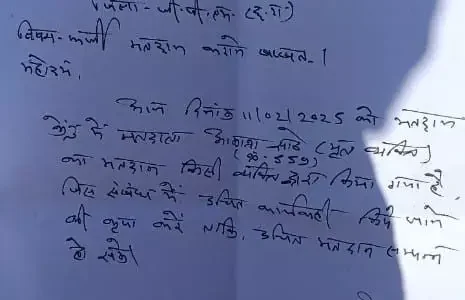 जिला - जी.पी.एम. (छ.ग.)
विषय - फर्जी मतदान कराने बाबत्।
महोदय,
आज दिनांक 11/02/2025 को मतदान
केंद्र में मतदाता साठे (मूल व्यक्ति)
(क्र. 559)
का मतदान किसी व्यक्ति द्वारा किया गया है,
जिस संबंध में उचित कार्यवाही किये जाने
की कृपा करें ताकि, उचित मतदान सम्पन्न
हो सके।